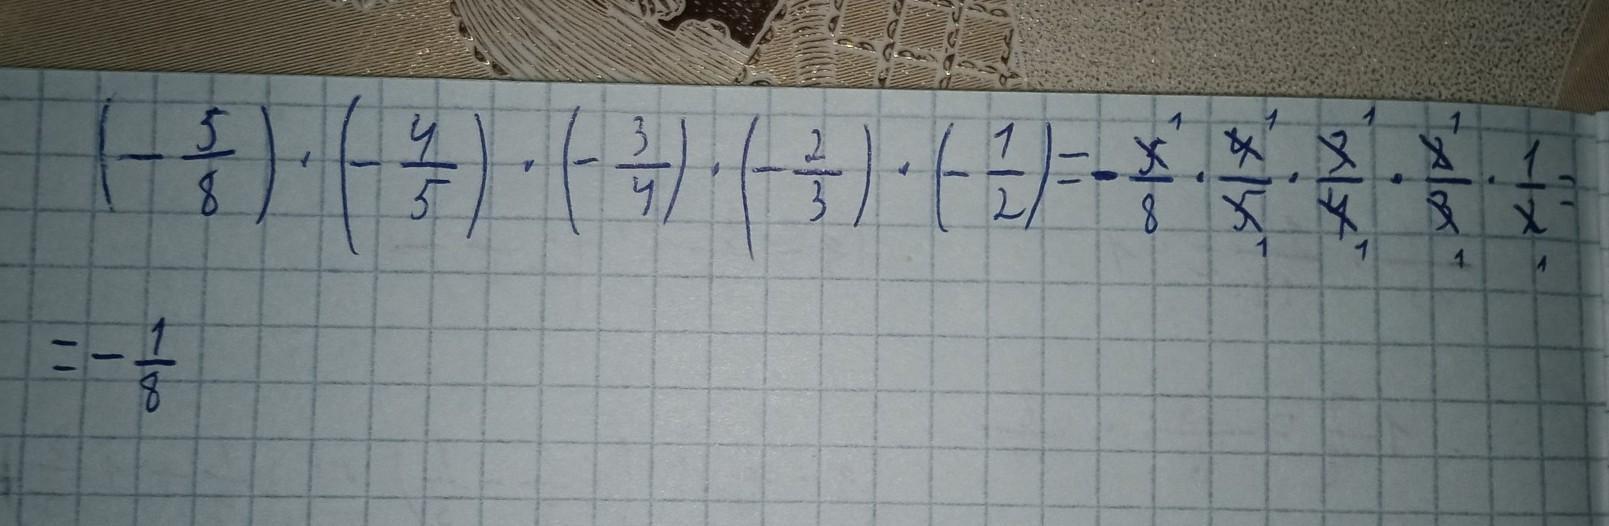 (- 5/8) · (- 4/5) · (- 3/4) · (- 2/3) · (- 1/2) = - 5¹/8 · 4¹/5₁ · 3¹/4₁ · 2¹/3₁ · 1/2₁ =
= - 1/8